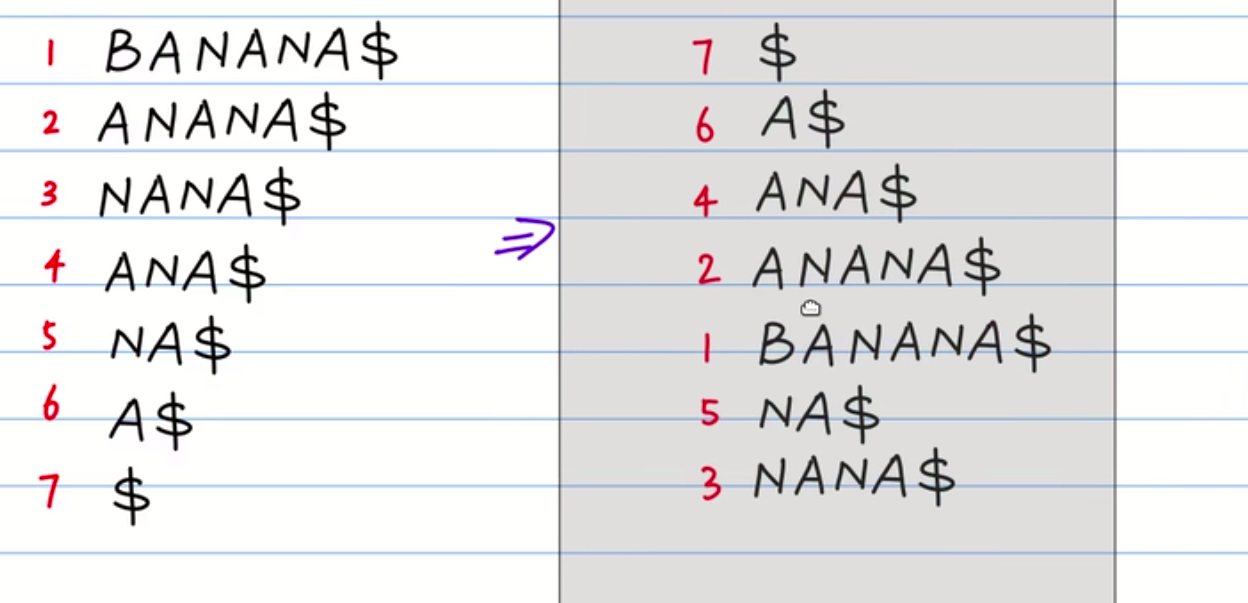 1 BANANA$
2 ANANA$
3 NANA$
4 ANA$
5 NA$
6 A$
7 $
⇒
7 $
6 A$
4 ANA$
2 ANANA$
1 BANANA$
5 NA$
3 NANA$